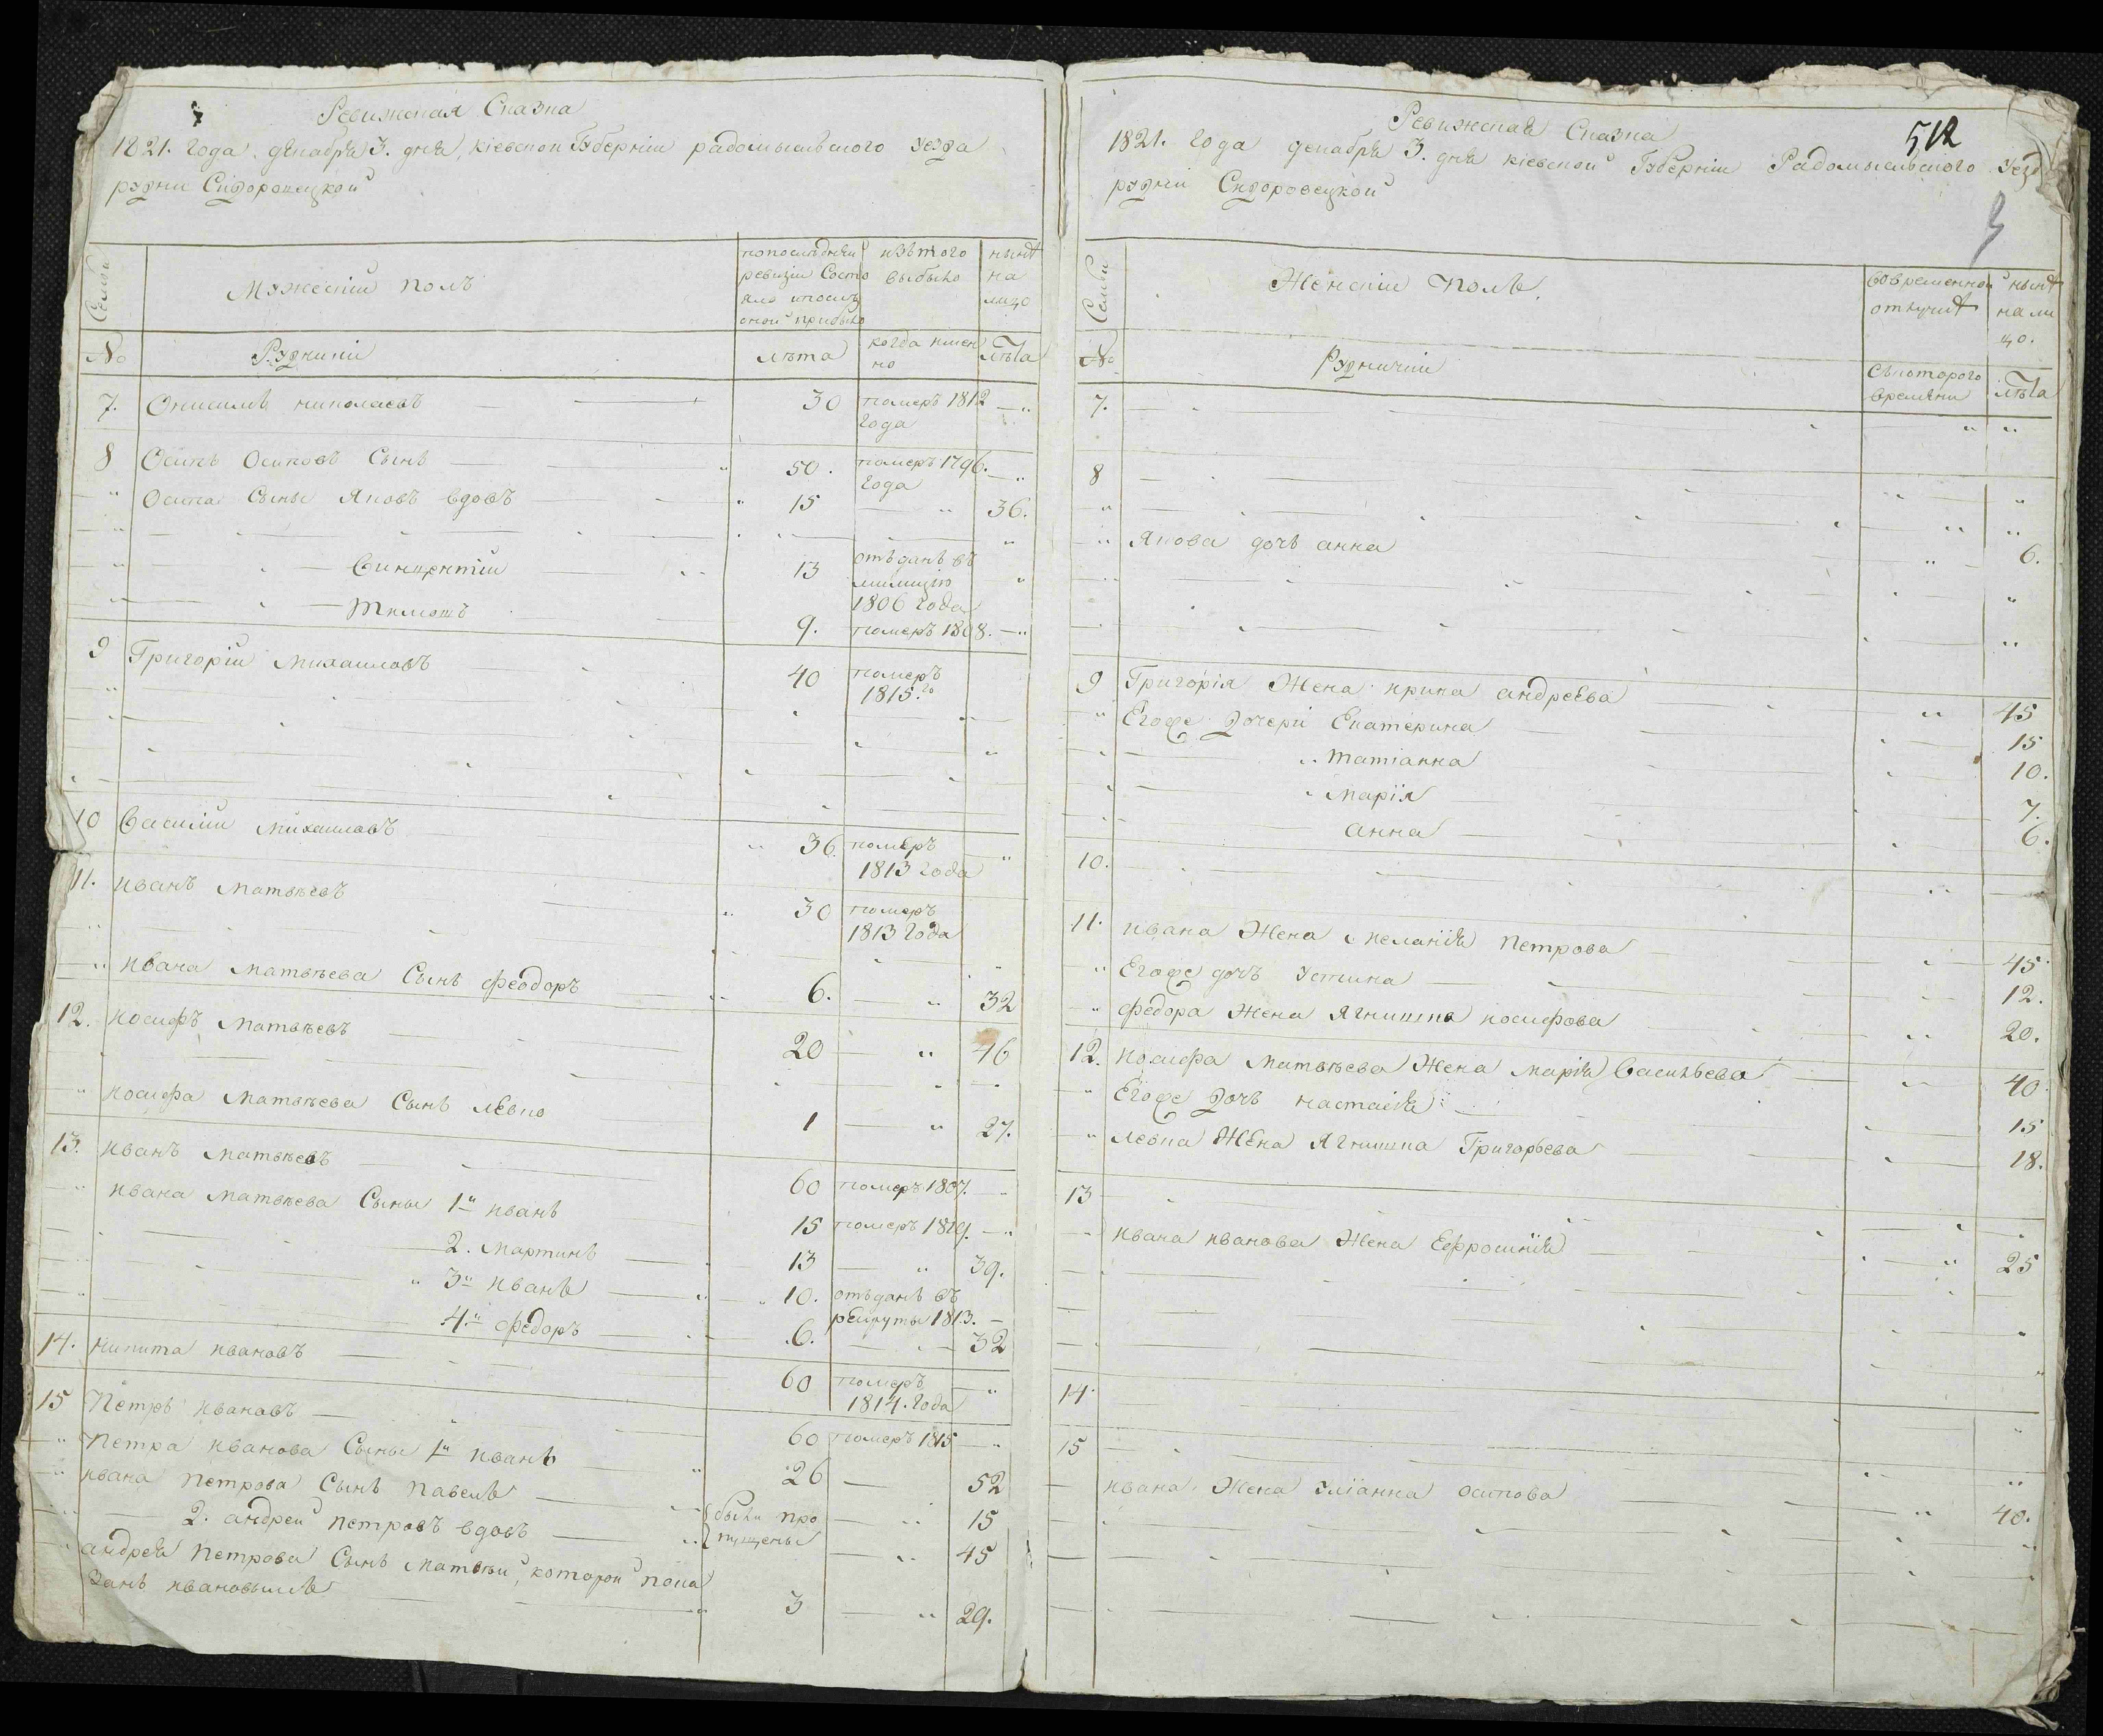 Ревижская Сказка
1821. года декабря 3. дня, кіевской Губерніи радомысльского уезда
рудни Сидоровецкой
Семьи
Мужескій полъ
попоследней ревизіи Состояло ипосле оной прибыло
изъ того выбыло
нынѣ на лицо
№ Рудники лѣта когда имянно Лѣта
7. Онисимъ николаевъ 30 померъ 1812 года
8 Осипъ Осиповъ Сынъ 50. померъ 1796. года
Осипа Сыны Яковъ вдовъ 15 36.
Викентій 13 отъданъ въ милицію 1806 года
Тимошъ 9. померъ 1808.
9 Григорій михаиловъ 40 померъ 1815.го
10 Василій михаиловъ 36. померъ 1813 года
11. иванъ матвѣевъ 30 померъ 1813 года
ивана матвѣева Сынъ феодоръ 6. 32
12. иосифъ матвѣевъ 20 46
иосифа матвѣева Сынъ левко 1 27.
13. иванъ матвѣевъ 60 померъ 1807.
ивана матвѣева Сыны 1й иванъ 15 померъ 1819.
2. мартинъ 13 39.
3й иванъ 10. отъданъ въ рекруты 1813.
4.й федоръ 6. 32
14. никита ивановъ 60 померъ 1814. года
15 Петръ ивановъ 60 померъ 1815
Петра иванова Сыны 1й иванъ 26 52
ивана петрова Сынъ павелъ были пропущены 15
2. андрей петровъ вдовъ 45
андрея петрова Сынъ матвѣй, которой показанъ ивановымъ 3 29.
Ревижская Сказка
512
1821. года декабря 3. дня кіевской Губерніи Радомысльского уезд
рудни Сидоровецкой
Семьи
Женскій полъ.
вовременной отлучкѣ
нынѣ на лицо.
№ Рудничкіи Съкоторого времяни лѣта
7.
8
Якова дочь анна 6.
9 Григорія Жена ирина андреева 45
Егоже дочери Екатерина 15
татіанна 10.
марія 7.
анна 6.
10.
11. ивана Жена меланія петрова 45
Егоже дочь устина 12.
федора Жена Ягнишка иосифова 20.
12. иосифа матвѣева Жена марія Васильева 40
Егоже дочь настасія 15
левка Жена Ягнишка Григорьева 18.
13
ивана иванова Жена Ефросинія 25
14.
15
ивана Жена уліанна осипова 40.